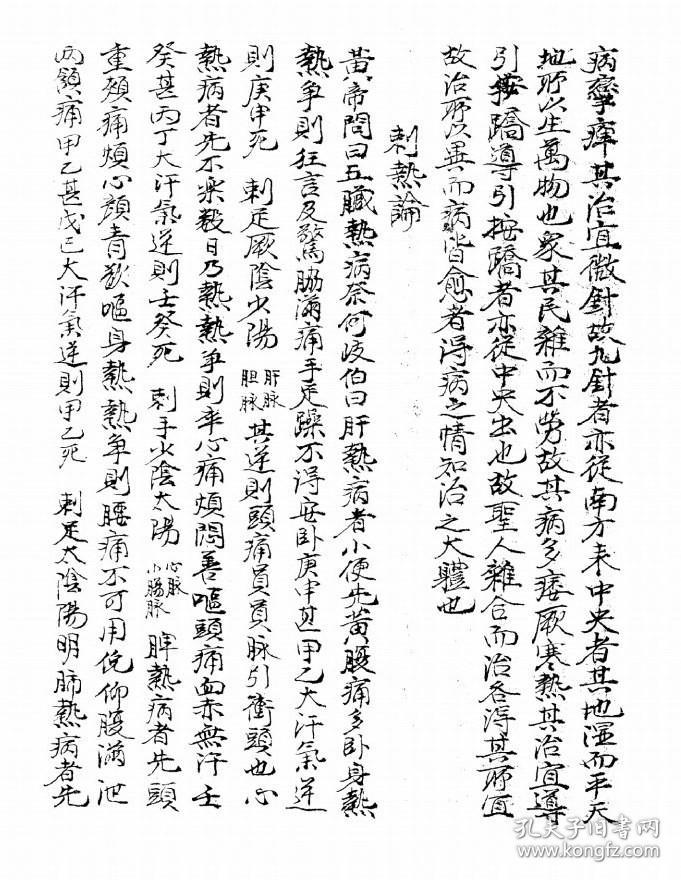 病攣痺其治宜微針故九針者亦従南方来中央者其地湿而平天
地所以生萬物也衆其民雜而不勞故其病多痿厥寒熱其治宜導
引按蹻導引按蹻者亦従中央出也故聖人雜合而治各得其所宜
故治所以異而病皆愈者得病之情知治之大體也
刺熱論
黄帝問曰五臓熱病奈何岐伯曰肝熱病者小便先黄腹痛多卧身熱
熱争則狂言及驚脇滿痛手足躁不得安卧庚申甚甲乙大汗氣逆
則庚申死 刺足厥陰少陽 肝脉胆脉 其逆則頭痛員員脉引衝頭也心
熱病者先不楽数日乃熱熱争則卒心痛煩悶善嘔頭痛面赤無汗壬
癸甚丙丁大汗氣逆則壬癸死 刺手少陰太陽 心脉小腸脉 脾熱病者先頭
重頬痛煩心顔青欲嘔身熱熱争則腰痛不可用俛仰腹滿泄
两頷痛甲乙甚戊己大汗氣逆則甲乙死 刺足太陰陽明肺熱病者先
孔夫子旧书网
www.kongfz.com